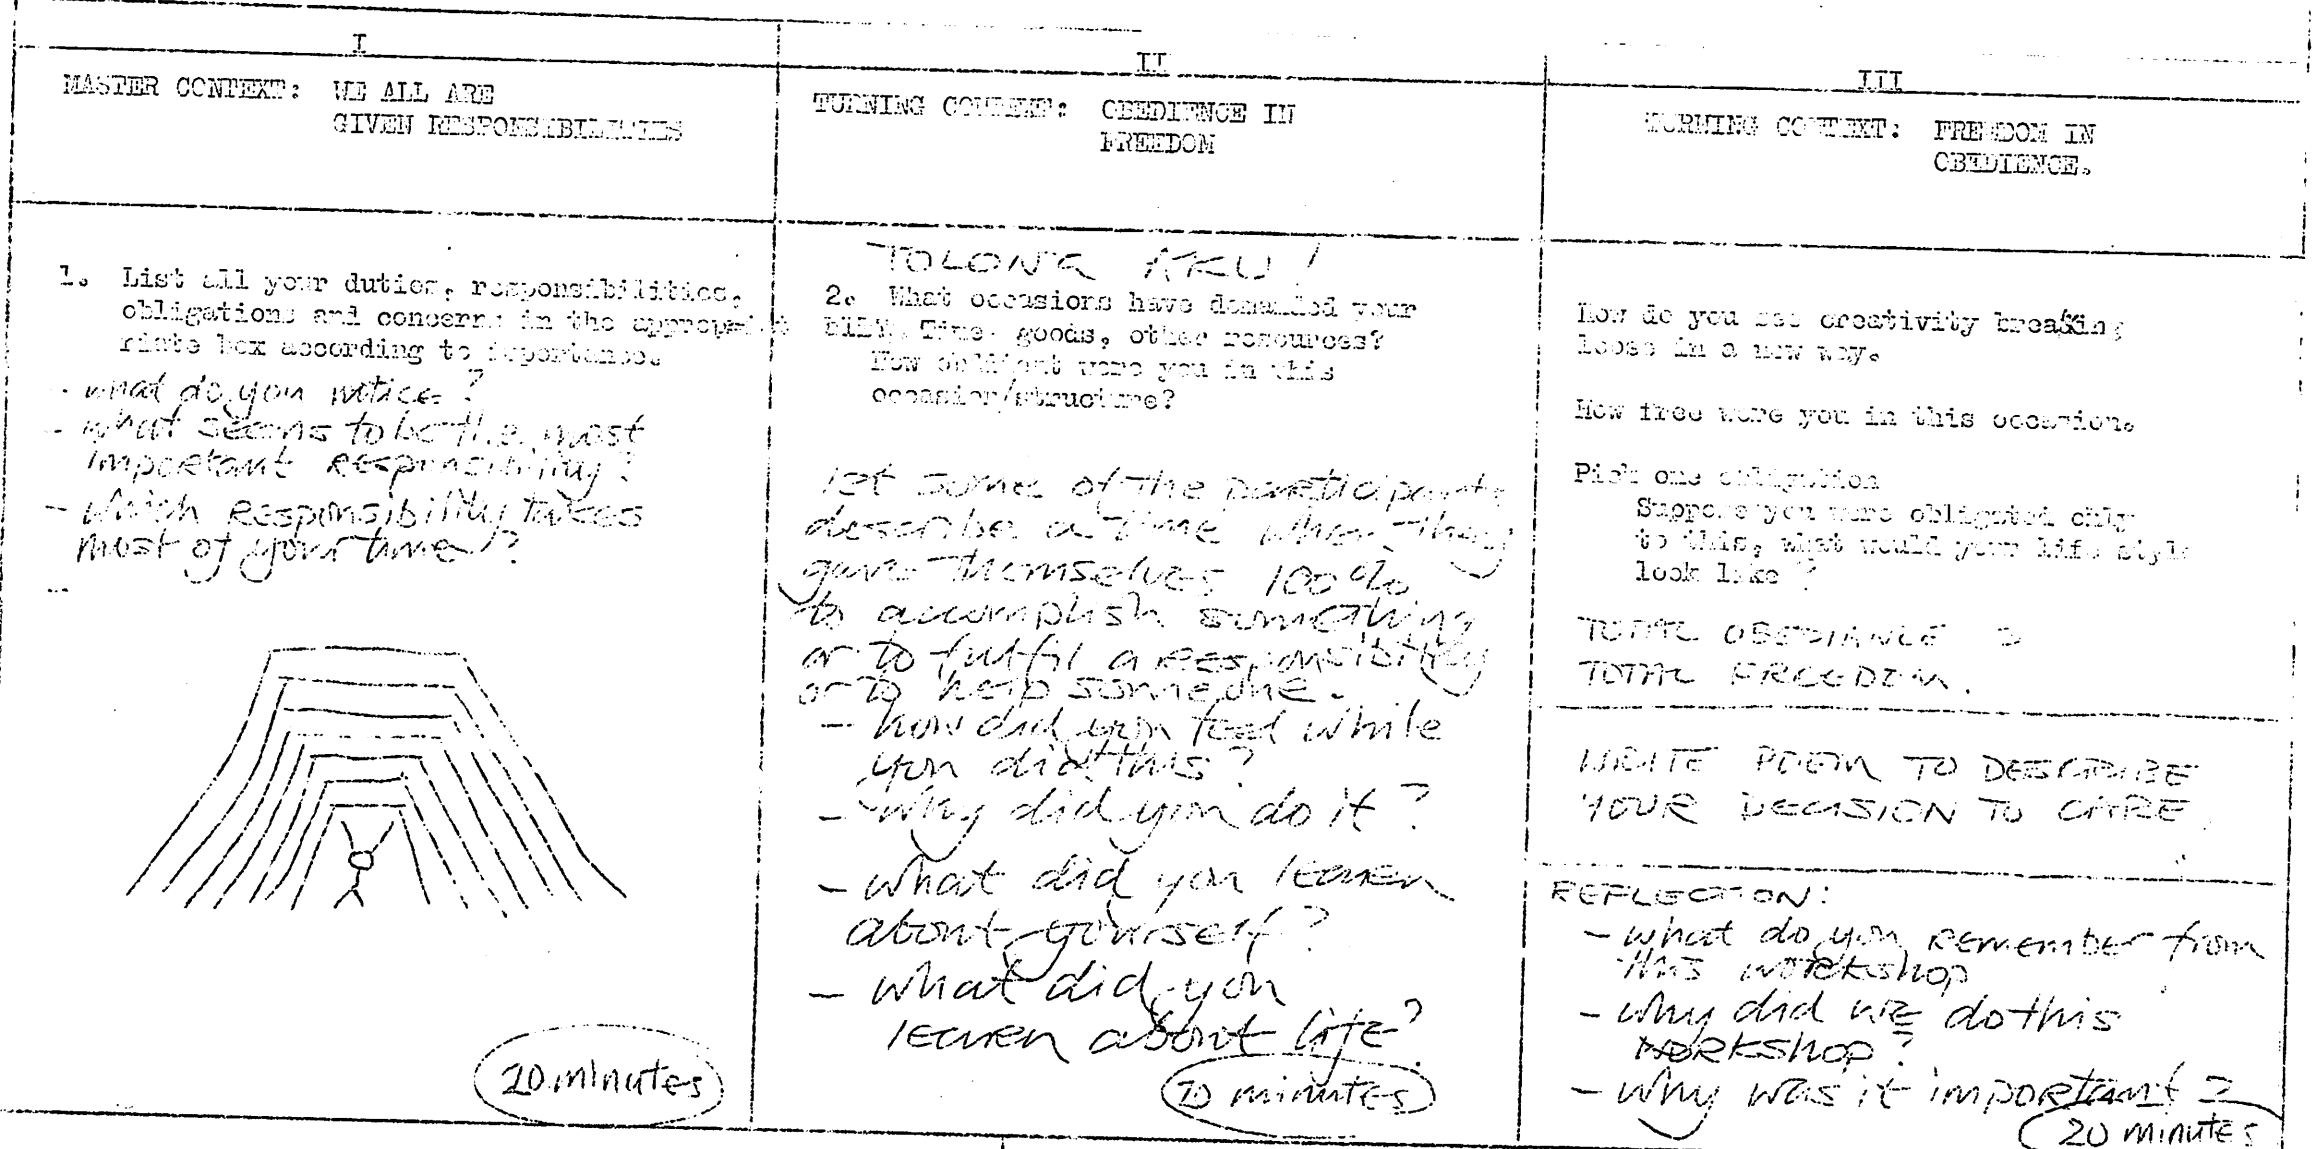 I
MASTER CONTEXT: WE ALL ARE
GIVEN RESPONSIBILITIES
1. List all your duties, responsibilities,
obligations and concerns in the approp
riate box according to importance.
- what do you notice?
- what seems to be the most
important responsibility?
- which responsibility takes
most of your time?
20 minutes
II
TURNING CONTEXT: OBEDIENCE IN
FREEDOM
TOLONG AKU!
2. What occasions have demanded your
Time, goods, other resources?
How obedient were you in this
occasion/structure?
let some of the participants
describe a time when they
gave themselves 100%
to accomplish something
or to fulfil a responsibility
or to help someone.
- how did you feel while
you did this?
- why did you do it?
- what did you learn
about yourself?
- what did you
learn about life?
minutes
III
TURNING CONTEXT: FREEDOM IN
OBEDIENCE.
How do you see creativity breaking
loose in a new way.
How free were you in this occasion.
Pick one obligation
Suppose you were obligated only
to this, what would your life style
look like?
TOTAL OBEDIANCE =
TOTAL FREEDOM.
WRITE POEM TO DESCRIBE
YOUR DECISION TO CARE.
REFLECTION:
- what do you remember from
this workshop
- why did we do this
workshop?
- why was it important?
20 minutes